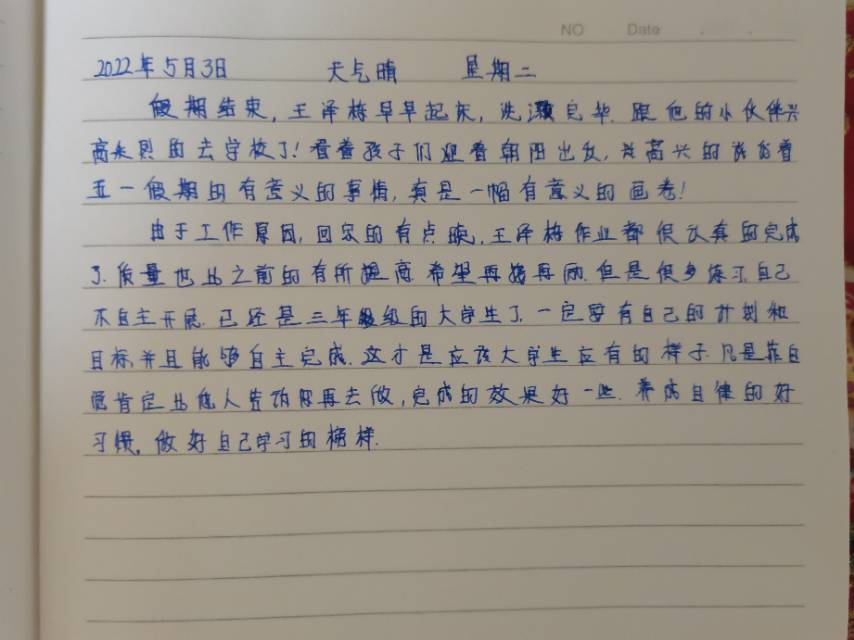 NO Date
2022年5月3日 天气晴 星期二
假期结束,王泽梅早早起床,洗漱完毕.跟他的小伙伴兴
高采烈的去学校了!看着孩子们迎着朝阳出发,兴高兴的说着
五一假期的有意义的事情,真是一幅有意义的画卷!
由于工作原因,回家的有点晚,王泽梅作业都很认真的完成
了.质量也比之前的有所提高.希望再接再厉.但是很多练习,自己
不自主开展.已经是三年级级的大学生了.一定要有自己的计划和
目标,并且能够自主完成.这才是应该大学生应有的样子.凡是靠自
觉肯定比他人告诉你再去做,完成的效果好一些.养成自律的好
习惯,做好自己学习的榜样.